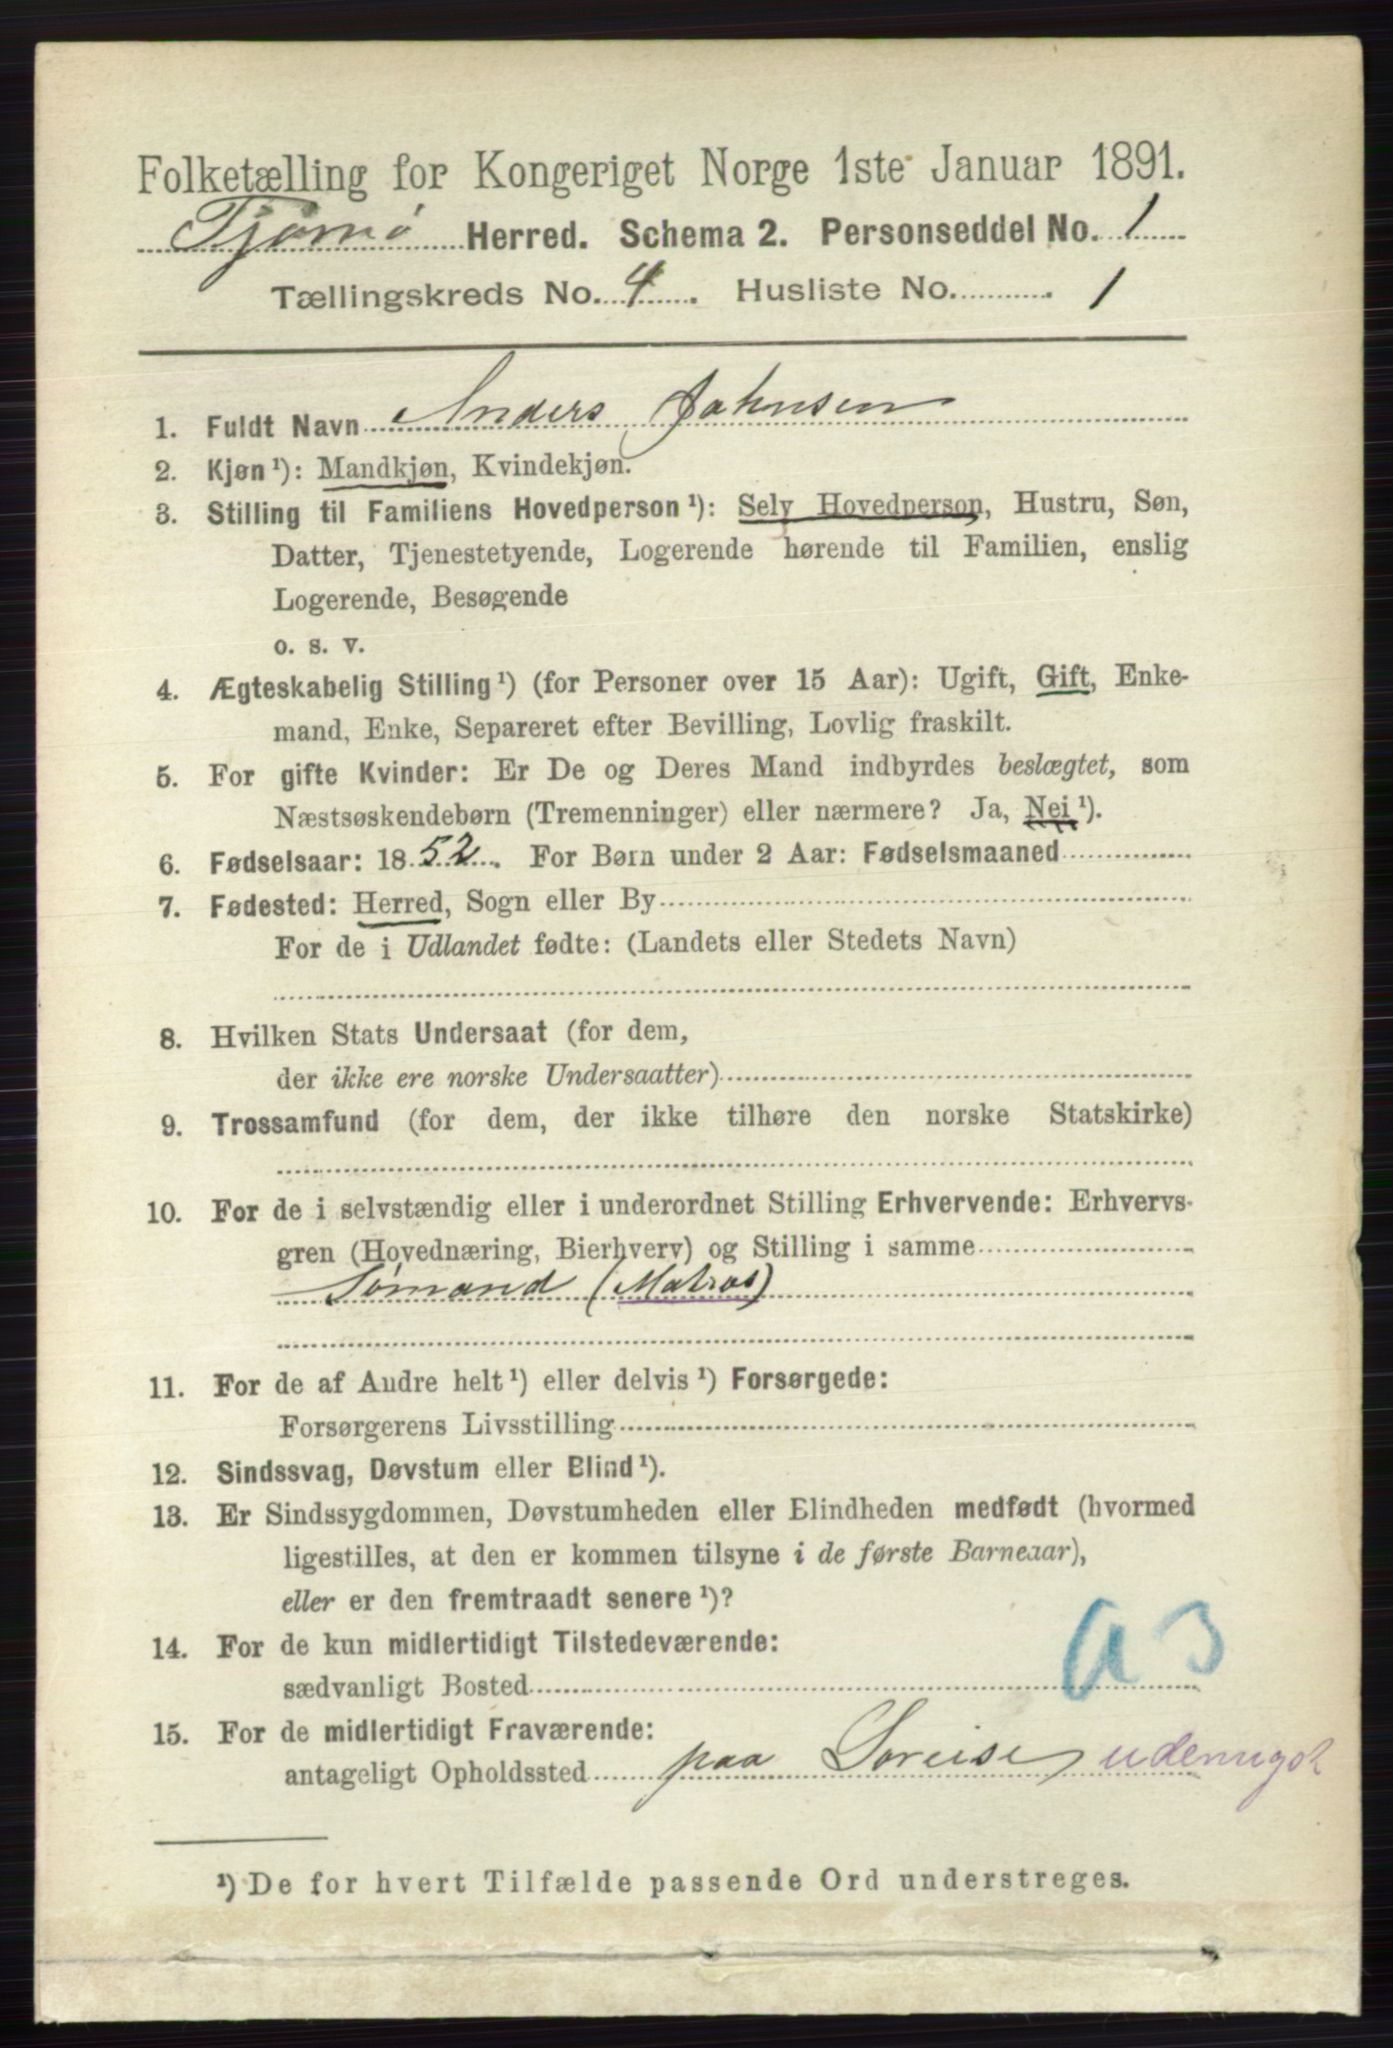 Folketælling for Kongeriget Norge 1ste Januar 1891.
Tjømø Herred. Schema 2. Personseddel No. 1
Tællingskreds No. 4. Husliste No. 1
1. Fuldt Navn Anders Johnsen
2. Kjøn¹): Mandkjøn, Kvindekjøn.
3. Stilling til Familiens Hovedperson¹): Selv Hovedperson, Hustru, Søn,
Datter, Tjenestetyende, Logerende hørende til Familien, enslig
Logerende, Besøgende
o. s. v.
4. Ægteskabelig Stilling¹) (for Personer over 15 Aar): Ugift, Gift, Enke-
mand, Enke, Separeret efter Bevilling, Lovlig fraskilt.
5. For gifte Kvinder: Er De og Deres Mand indbyrdes beslægtet, som
Næstsøskendebørn (Tremenninger) eller nærmere? Ja, Nei¹).
6. Fødselsaar: 1852. For Børn under 2 Aar: Fødselsmaaned
7. Fødested: Herred, Sogn eller By
For de i Udlandet fødte: (Landets eller Stedets Navn)
8. Hvilken Stats Undersaat (for dem,
der ikke ere norske Undersaatter)
9. Trossamfund (for dem, der ikke tilhøre den norske Statskirke)
10. For de i selvstændig eller i underordnet Stilling Erhvervende: Erhvervs-
gren (Hovednæring, Bierhverv) og Stilling i samme
Sømand (Matros)
11. For de af Andre helt¹) eller delvis¹) Forsørgede:
Forsørgerens Livsstilling
12. Sindssvag, Døvstum eller Blind¹).
13. Er Sindssygdommen, Døvstumheden eller Blindheden medfødt (hvormed
ligestilles, at den er kommen tilsyne i de første Barneaar),
eller er den fremtraadt senere¹)?
14. For de kun midlertidigt Tilstedeværende:
sædvanligt Bosted
a 3
15. For de midlertidigt Fraværende:
antageligt Opholdssted paa Søreise udenrigsk
¹) De for hvert Tilfælde passende Ord understreges.